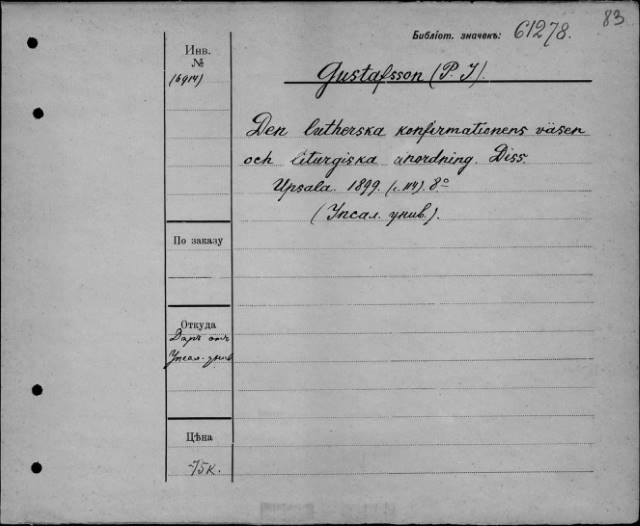 83
Библіот. значекъ: 61278.
Инв.
№
(6914)
Gustafsson (P. J).
Den lutherska konfirmationens väsen
och liturgiska anordning. Diss.
Upsala. 1899. (с. 114). 8°
(Упсал. унив.).
По заказу
Откуда
Даръ отъ
Упсал. унив
Цѣна
-75к.